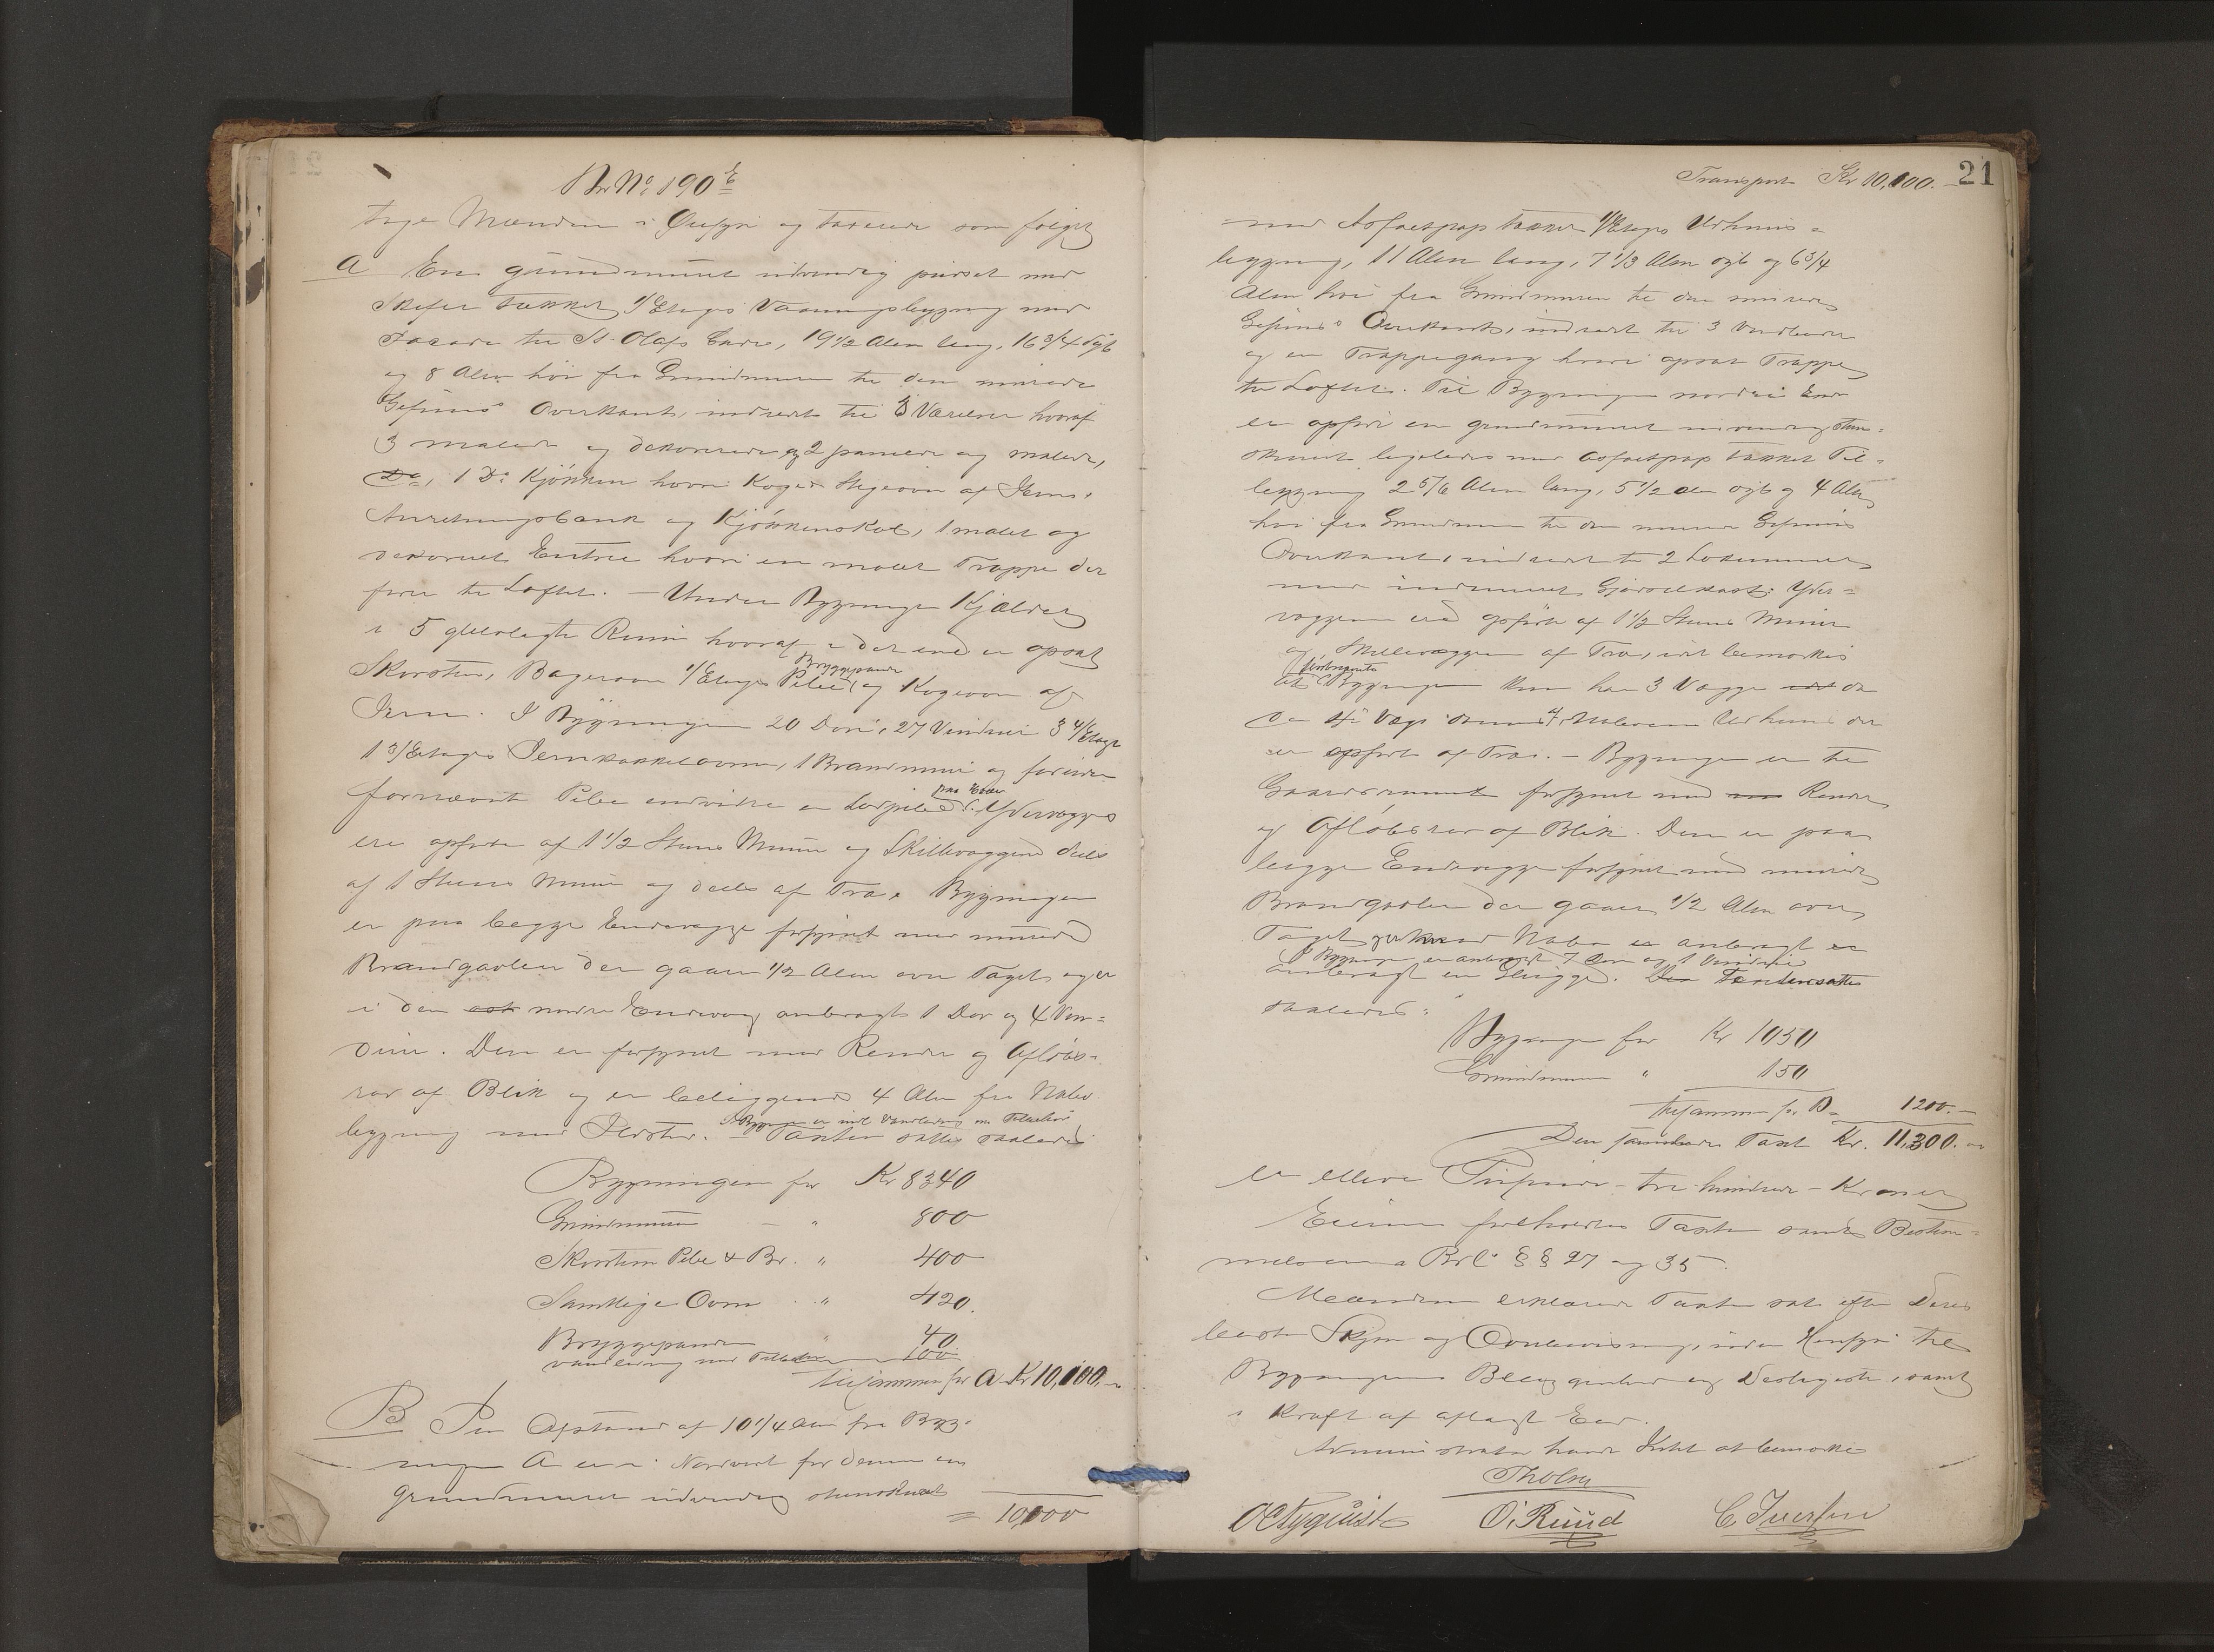 Br No. 190 E
toge Mændene i Øiesyn og taxerede som følger
A En grundmuret udvendig pudset med
Skifer tækket 1/Etages Vaaningsbygning med
Facade til St. Olafs Gade, 19 1/2 Alen lang, 16 3/4 dyb
og 8 Alen høi fra Grundmuren til den murede
Gesims' Overkant, indredet til 5 Værelser hvoraf
3 malede og dekorerede og 2 panelede og malede,
Do, 1 Do Kjøkken hvori Koge & Stegeovn af Jern,
Anretningsbænk og Kjøkkenskab, 1 malet og
dekoreret Entree hvori en malet Trappe der
fører til Loftet. – Under Bygningen Kjælder
i 5 gulvlagte Rum hvoraf i det ene er opsat
Bryggepande
Skorsten, Bagerovn 1/Etages Pibe og Kogeovn af
Jern. I Bygningen 20 Døre, 27 Vinduer 3 4/Etages
1 3/Etages Jernkakkelovne, 1 Brandmur og foruden
paa Gaver
fornævnte Pibe endvidere en Løspibe. Ydervægge
ere opførte af 1 1/2 Stens Mure og Skillevæggene dels
af 1 Stens Mure og deels af Træ. Bygningen
er paa begge Endevægge forsynet med murede
Brandgavler der gaaer 1/2 Alen over Taget og er
i den nordre Endevæg anbragt 1 Dør og 4 Vin=
duer. Den er forsynet med Render og Afløbs=
rør af Blik og er beliggende 4 Alen fra Nabo
I Bygn. er indl. Vandledning med Tilbehør
bygning med Ildsted. – Taxten sattes saaledes
Bygningen for Kr 8340
Grundmuren – " 800
Skorsten Pibe & Br. " 400
Samtlige Ovne " 420.
Bryggepanden " 40
Vandledning med Tilbehør 100
tilsammen for A Kr 10,100.–
B I en Afstand af 10 1/4 Alen fra Byg=
ningen A er i Nordvest for denne en
grundmuret udvendig stenskuret
= 10,100
21
Transport Kr 10,100.–
med Asfaltpap tækket 1/Etages Udhuus=
bygning, 11 Alen lang, 7 1/3 Alen dyb og 6 3/4
Alen høi fra Grundmuren til den murede
Gesims' Overkant, indredet til 3 Vedboder
og en Trappegang hvori opsat Trappe
til Loftet. Til Bygningens nordre Ende
er opført en grundmuret udvendig sten=
skuret ligeledes med Asfaltpap tækket Til=
bygning 2 5/6 Alen lang, 5 1/2 Alen dyb og 4 Alen
høi fra Grundmuren til den murede Gesims
Overkant, indredet til 2 Lokummer
med indmuret Gjødselkast. Yder=
væggene ere opførte af 1 1/2 Stens Mure
og Skillevæggen af Træ, idet bemærkes
førstnævnte
at Bygningen kun har 3 Vægge da
den 4de Væg dannes af Naboens Udhuus der
er opført af Træ. – Bygningen er til
Gaardsrummet forsynet med Render
og Afløbsrør af Blik. Den er paa
begge Endevægge forsynet med murede
Brandgavler der gaaer 1/2 Alen over
Taget anbragt
I Bygningen er anbragt 7 Døre og 1 Vindue
anbragt en Glugge. Den Taxten sattes
saaledes:
Bygningen for Kr 1050
Grundmuren " 150
tilsammen for B – 1200.–
Den samlede Taxt Kr. 11,300.–
er elleve Tusinde tre hundrede Kroner
Eieren forholdtes Taxten samt Bestem=
melserne i Brl. §§ 27 og 35.
Mændene erklærede Taxten sat efter deres
bedste Skjøn og Overbevisning, under Hensyn til
Bygningens Beliggenhed og Beskaffenhed, samt
i Kraft af aflagt Eed.
Administrator havde Intet at bemærke
Tholm
O Nyquist O. Ruud C. Iversen